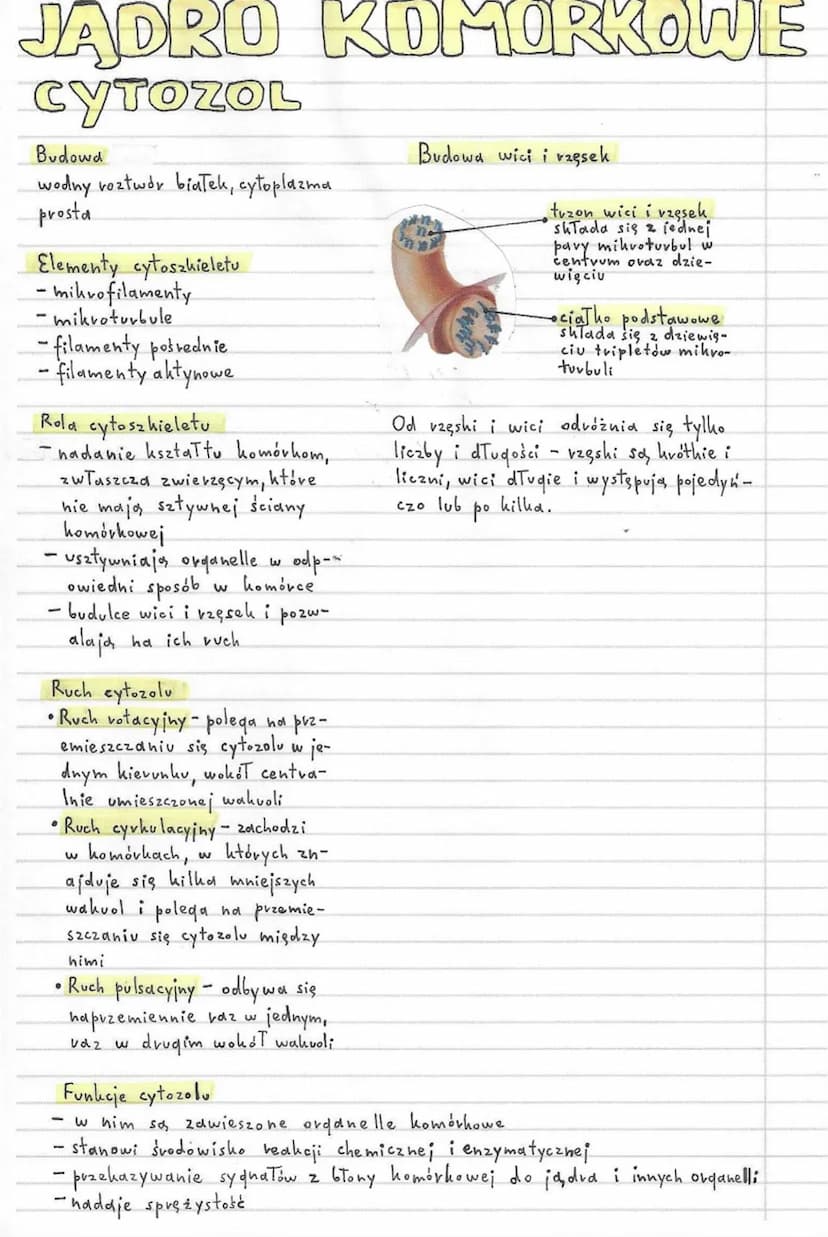 JĄDRO KOMÓRKOWE
CYTOZOL
Budowa
wodny roztwór białek, cytoplazma
prosta
Elementy cytoszkieletu
- mikrofilamenty
- mikroturbule
- filamenty pośrednie
- filamenty aktynowe
Rola cytoszkieletu
- nadanie kształtu komórkom,
zwłaszcza zwierzęcym, które
nie mają sztywnej ściany
komórkowej
- usztywniają organelle w odp-
owiedni sposób w komórce
- budulce wici i rzęsek i pozw-
alają na ich ruch
Ruch cytozolu
• Ruch rotacyjny - polega na prz-
emieszczaniu się cytozolu w je-
dnym kierunku, wokół centra-
lnie umieszczonej wakuoli
• Ruch cyrkulacyjny - zachodzi
w komórkach, w których zn-
ajduje się kilka mniejszych
wakuol i polega na przemie-
szczaniu się cytozolu między
nimi
• Ruch pulsacyjny - odbywa się
naprzemiennie raz w jednym,
raz w drugim wokół wakuoli
Budowa wici i rzęsek
trzon wici i rzęsek
składa się z jednej
pary mikroturbul w
centrum oraz dzie-
więciu
ciałko podstawowe
składa się z dziewię-
ciu tripletów mikro-
turbuli
Od rzęski i wici odróżnia się tylko
liczby i długości - rzęski są krótkie i
liczni, wici długie i występują pojedyń-
czo lub po kilka.
Funkcje cytozolu
- w nim są zawieszone organelle komórkowe
- stanowi środowisko reakcji chemicznej i enzymatycznej
- przekazywanie sygnałów z błony komórkowej do jądra i innych organelli
- nadaje sprężystość